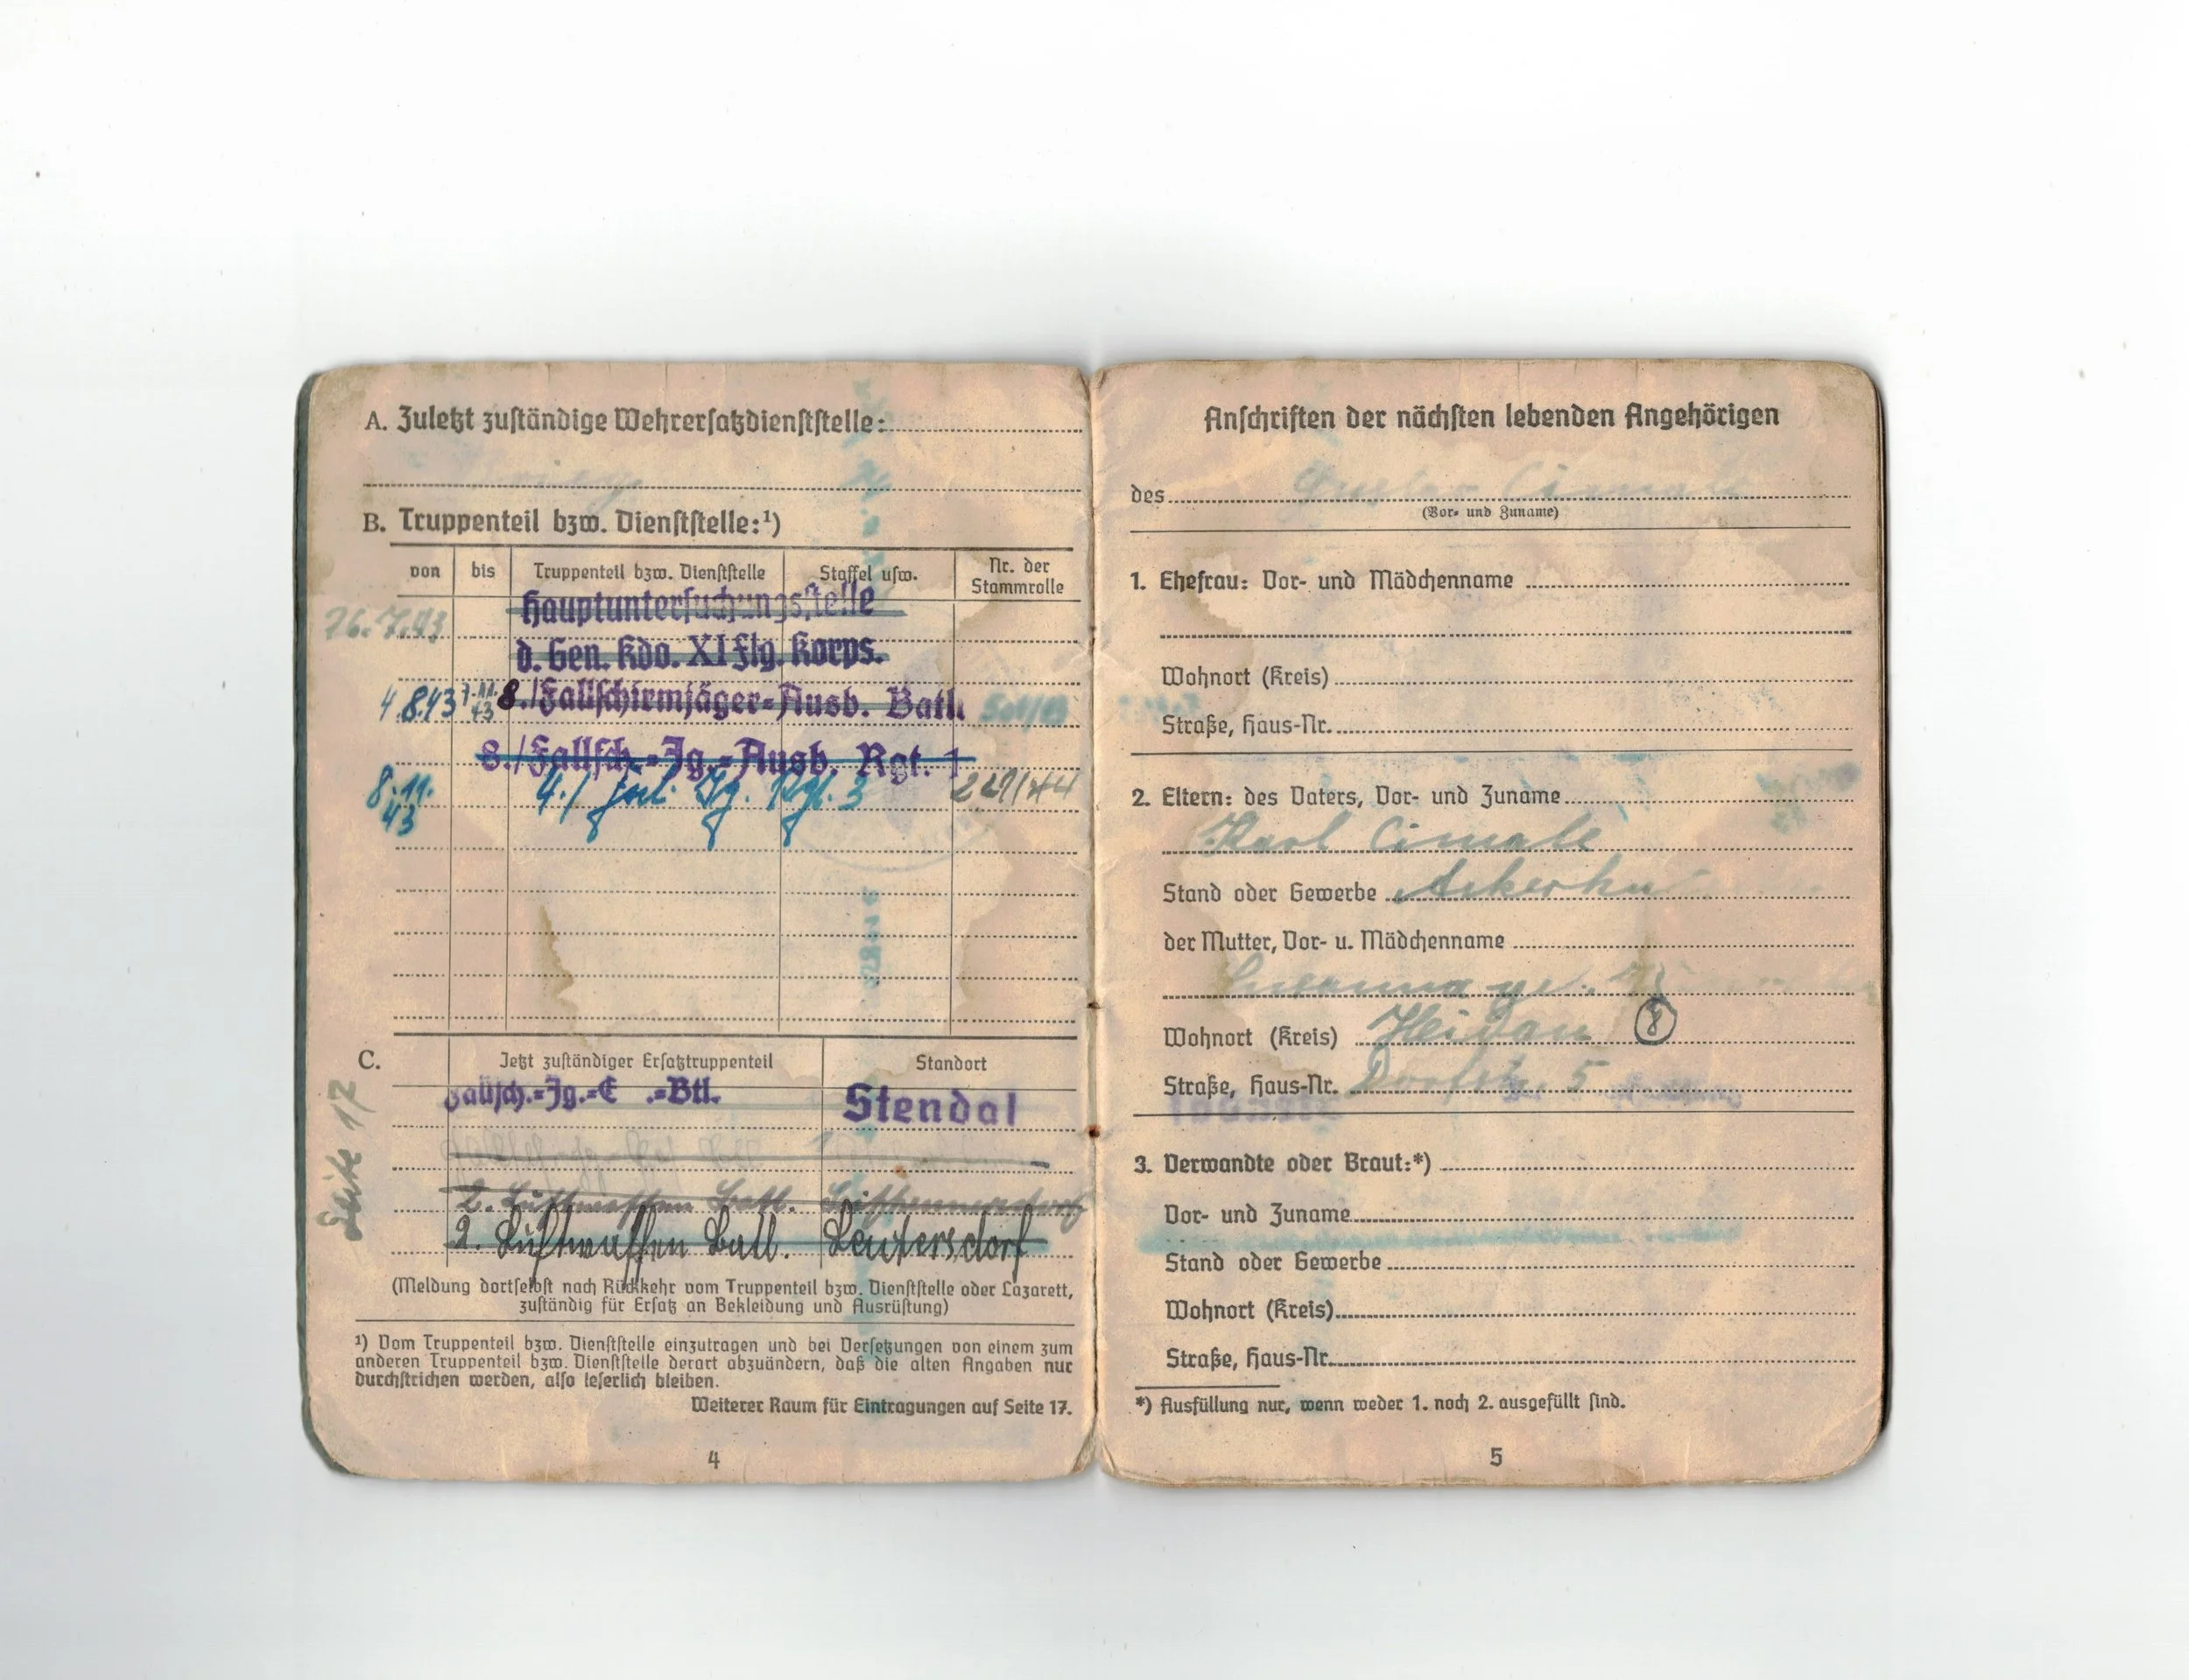 A. Zuletzt zuständige Wehrersatzdienststelle:
B. Truppenteil bzw. Dienststelle:¹)
von bis Truppenteil bzw. Dienststelle Staffel usw. Nr. der Stammrolle
26.7.43 Hauptuntersuchungsstelle
d. Gen. Kdo. XI Flg. Korps.
4.8.43 7.11.43 8./Fallschirmjäger-Ausb. Batl.
8./Fallsch.-Jg.-Ausb. Rgt. 1
8.11.43 4./ Jg. Rgt. 3 221/44
C. Jetzt zuständiger Ersatztruppenteil Standort
Fallsch.-Jg.-E .-Btl. Stendal
2. Luftwaffen Batl.
2. Luftwaffen Batl. Leutersdorf
Seite 17
(Meldung dortselbst nach Rückkehr vom Truppenteil bzw. Dienststelle oder Lazarett,
zuständig für Ersatz an Bekleidung und Ausrüstung)
¹) Vom Truppenteil bzw. Dienststelle einzutragen und bei Versetzungen von einem zum
anderen Truppenteil bzw. Dienststelle derart abzuändern, daß die alten Angaben nur
durchstrichen werden, also leserlich bleiben.
Weiterer Raum für Eintragungen auf Seite 17.
4
Anschriften der nächsten lebenden Angehörigen
des Cimale
(Vor- und Zuname)
1. Ehefrau: Vor- und Mädchenname
Wohnort (Kreis)
Straße, Haus-Nr.
2. Eltern: des Vaters, Vor- und Zuname
Karl Cimale
Stand oder Gewerbe
der Mutter, Vor- u. Mädchenname
Wohnort (Kreis) Heidau 8
Straße, Haus-Nr. Dorfstr. 5
3. Verwandte oder Braut:*)
Vor- und Zuname
Stand oder Gewerbe
Wohnort (Kreis)
Straße, Haus-Nr.
*) Ausfüllung nur, wenn weder 1. noch 2. ausgefüllt sind.
5